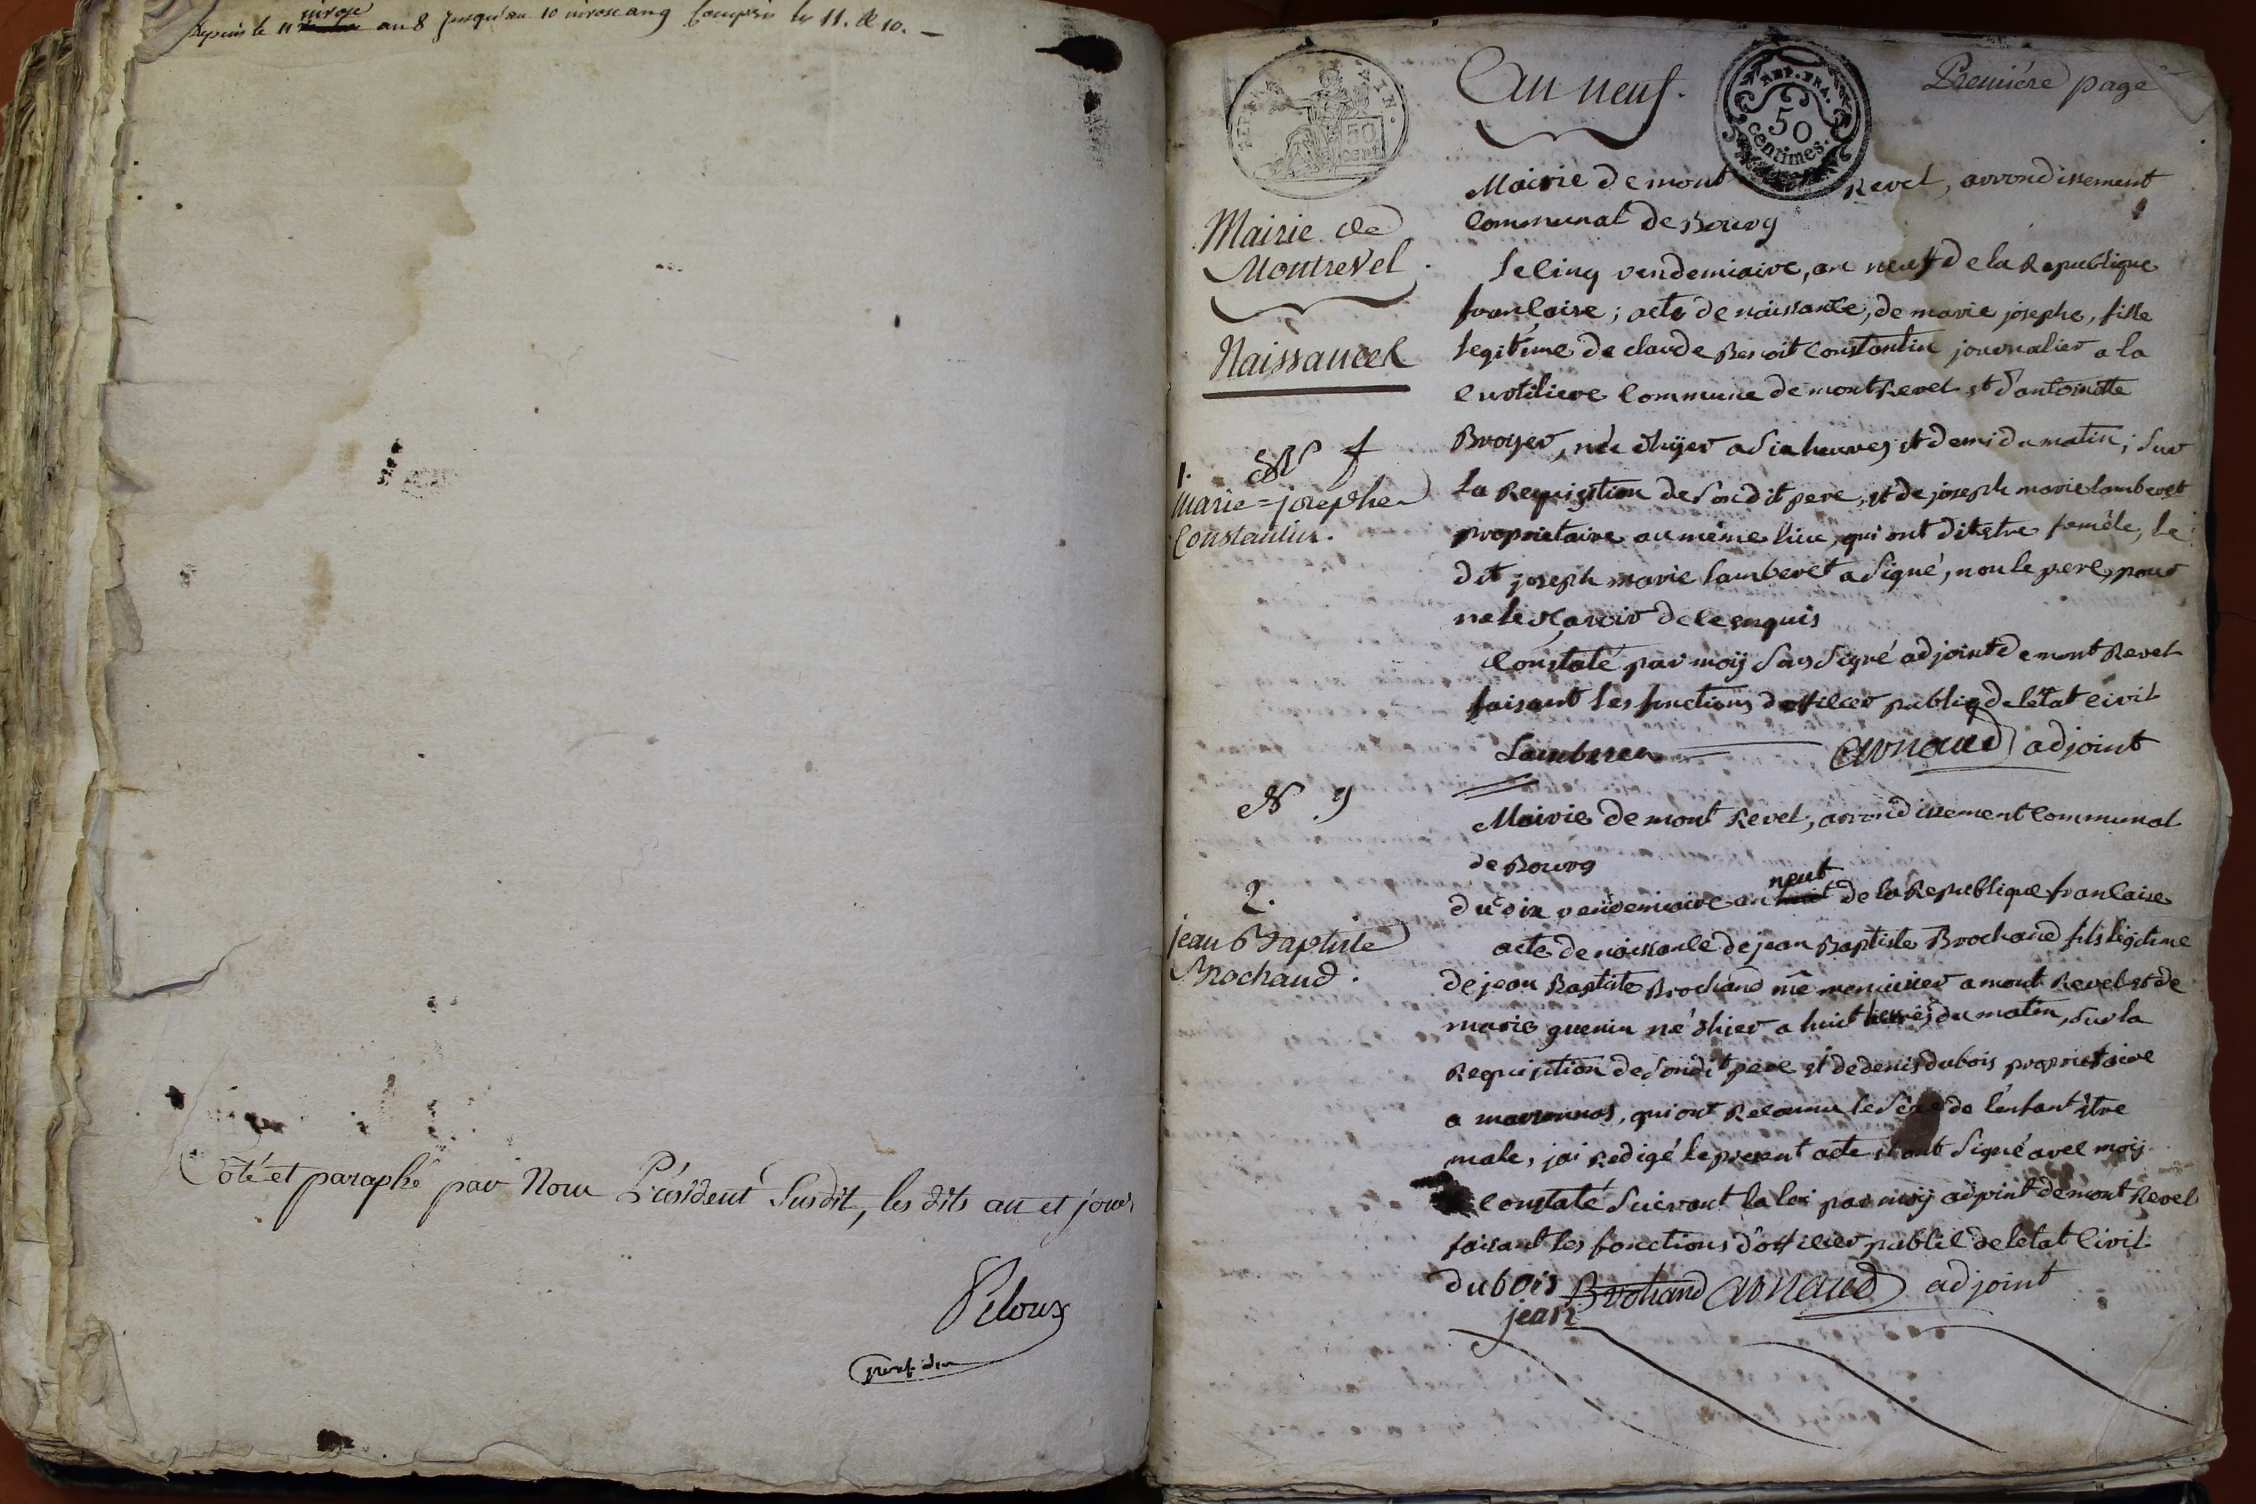 depuis le 11 nivose an 8 jusqu'au 10 nivose an 9 Compris le 11. & 10. —
Côté et paraphé par Nous Président Susdit, les dits an et jour
Peloux
président
REP. FRA.
50
cent
REP. FRA.
50
centimes.
An neuf.
Premiére page
Mairie de
Montrevel
Naissances
Mairie de mont Revel, arrondissement
Communal de Bourg
le Cinq vendemiaire, an neuf de la Republique
francaise; acte de naissance, de marie josephe, fille
legitime de claude Benoit Constantin journalier a la
Commune de mont Revel et d'antoinette
N
1.
marie=josephe
Constantin.
Broyer, née d'hyer a dix heures et demi du matin; sur
la Requisition de son dit pere, et de joseph marie lamberet
proprietaire au même lieu, qui ont dit etre femêle, le
dit joseph marie lamberet a Signé, non le pere, pour
ne le sçavoir de ce enquis
Constaté par moy Sous Signé adjoint de mont Revel
faisant les fonctions d'officier public de l'état civil
Lamberet Arnaud adjoint
N 9
2.
jean Baptiste
Brochand.
Mairie de mont Revel, arrondissement Communal
de Bourg
du dix vendemiaire an neuf de la Republique francaise
acte de naissance de jean Baptiste Brochand fils légitime
de jean Baptiste Brochand me menuisier a mont Revel et de
marie guenin né d'hier a huit heures du matin, sur la
Requisition de sondit pere et de denis dubois proprietaire
a marsonnas, qui ont Reconnu le sexe de l'enfant être
male, jai Redigé le present acte et ont Signé avec moy
Constaté Suivant la loi par moy adjoint de mont Revel
faisant les fonctions d'officier public de l'etat Civil
dubois Brochand Arnaud adjoint
jean